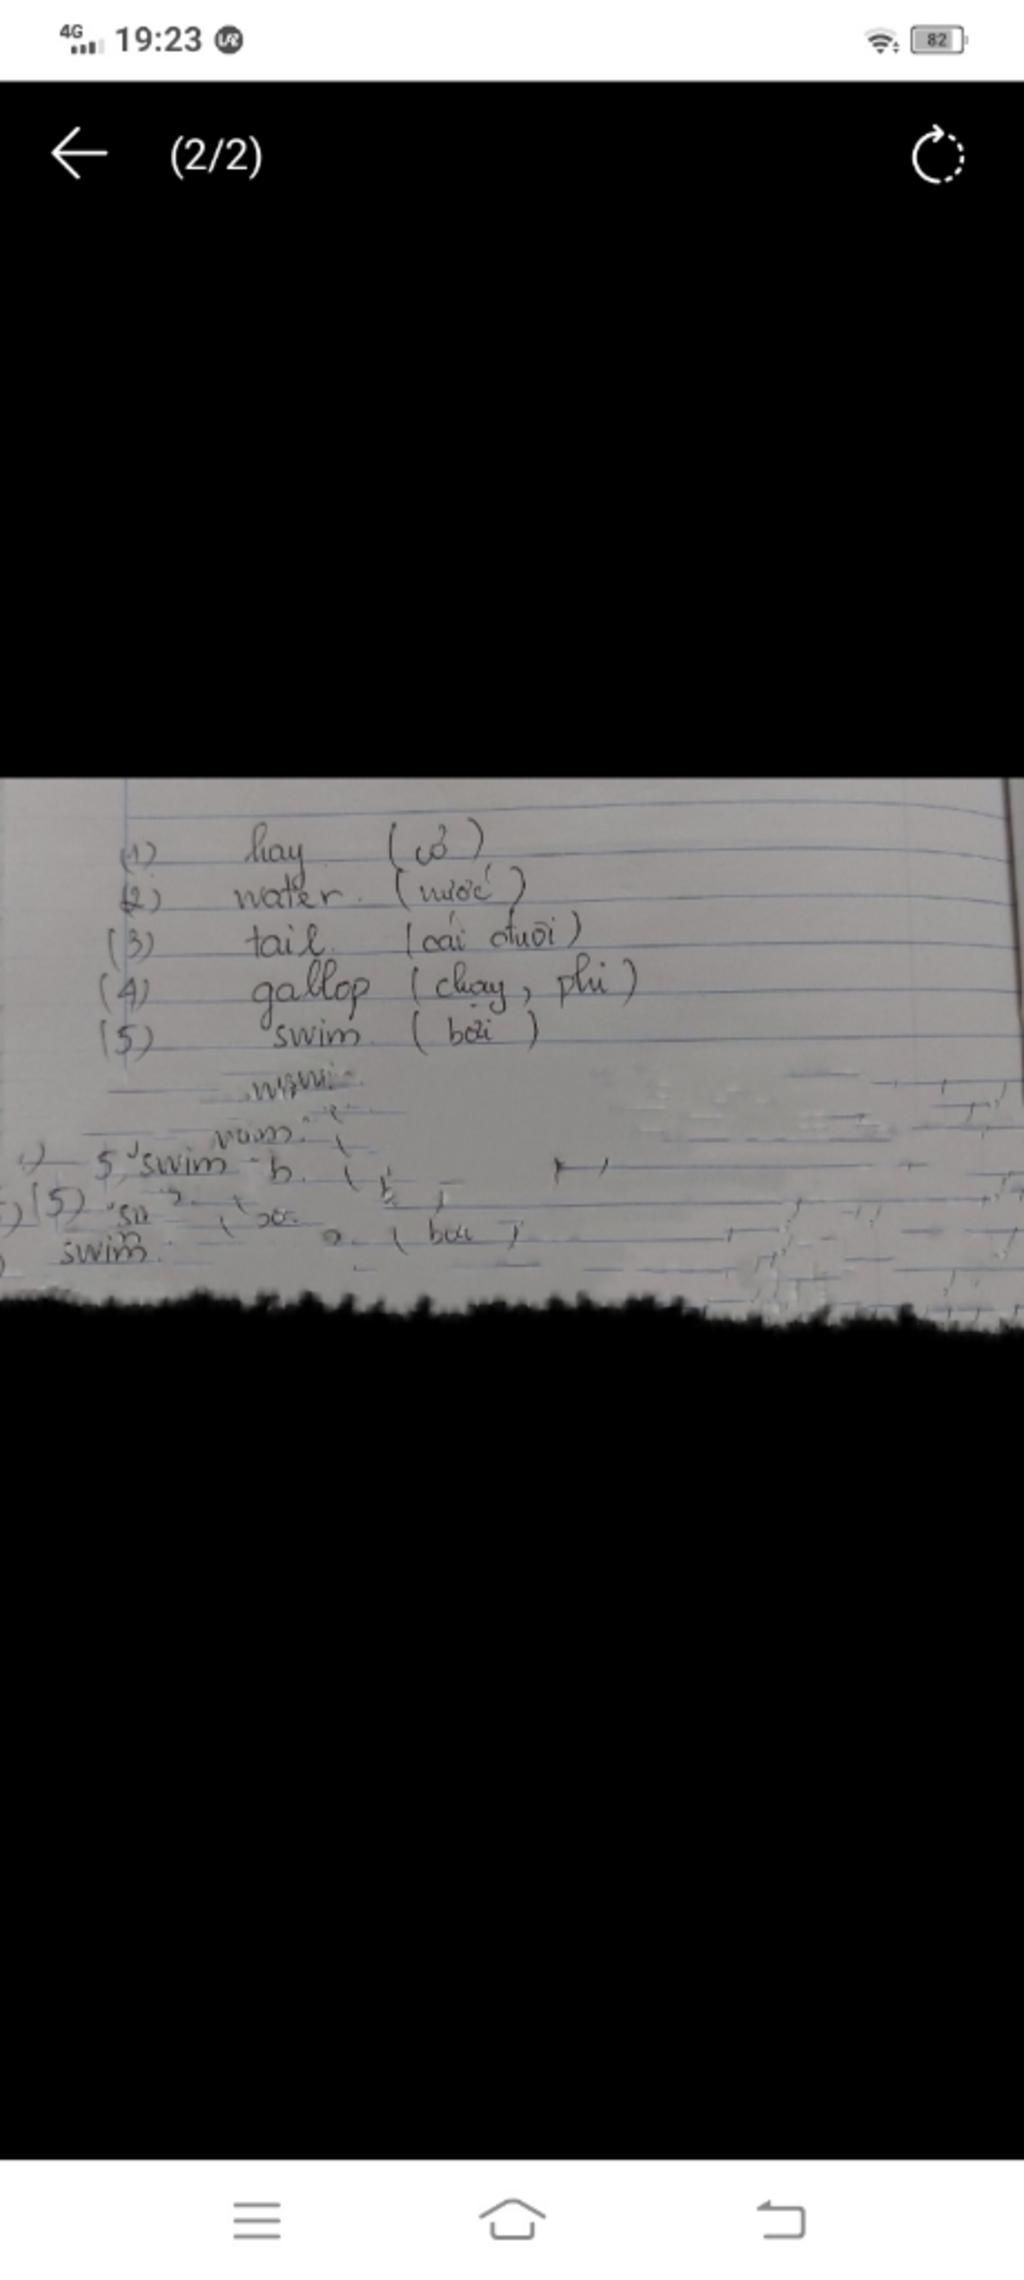 4G 19:23 82
(2/2)
(1) hay (cỏ)
(2) water. (nước)
(3) tail. (cái đuôi)
(4) gallop (chạy, phi)
(5) swim. (bơi)
5, swim b.
(5)
swim